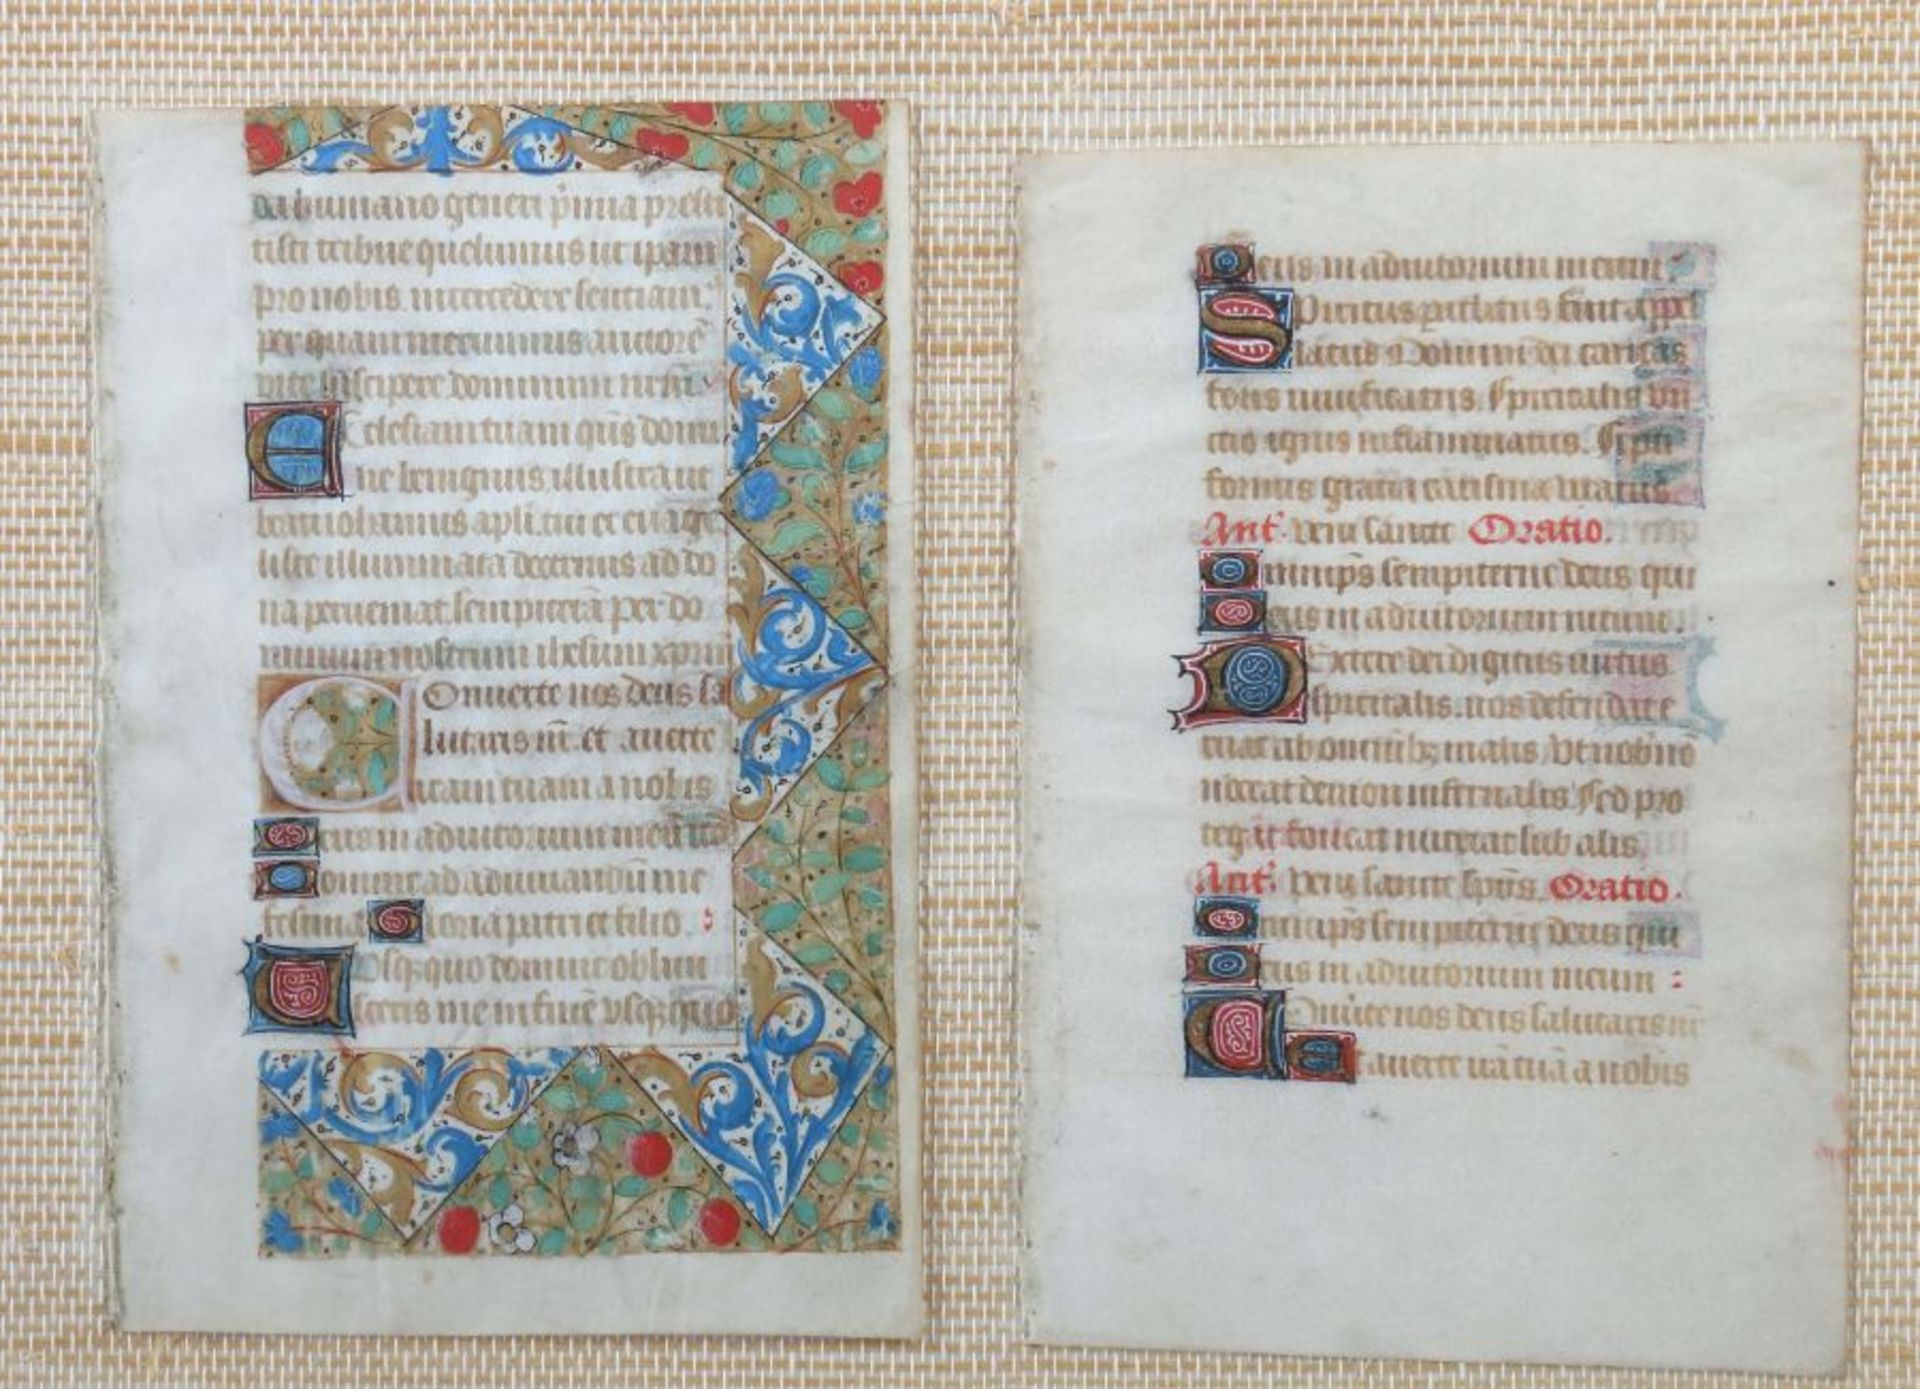 da humano generi p̄mia presti
tisti tribue quesumus ut ipam
pro nobis intercedere sentiam
per quam meruimus auctorē
vite suscipere dominum nr̄m
Ecclesiam tuam q̄s domi
ne benignus illustra ut
beati iohannis apl̄i tui et euāge
liste illuminata doctrinis ad do
na perueniat sempiterā per do
minum nostrum ihesum xp̄m
Conuerte nos deus sa
lutaris nr̄ et auerte
iram tuam a nobis
Deus in adiutorium meū īt
Domine ad adiuuandū me
festina Gloria patri et filio.
Usq̄quo domine obliui
sceris me in finē usq̄quo
Deus in adiutorium meum
Spiritus paclitus fuit appel
latus Donum dei caritas
fons uiuificatis Spiritalis vn
ctio ignis inflammatus. Septi
formis gratia carisma uocatus
Ant̄. Veni sancte Oratio.
Omnip̄s sempiterne deus qui
Deus in adiutorium meum.
Dextere dei digitus uirtus
spiritalis nos defendat e
ruat ab omnibꝫ malis, Vt nobis nō
noceat demon infernalis Sed pro
tegat et foueat nutriat sub alis,
Ant̄. Veni sancte sp̄us. Oratio.
Omnip̄s sempiterne deus qui
Deus in adiutorium meum :
Conu̇te nos deus salutaris nr̄
Et auerte irā tuā a nobis